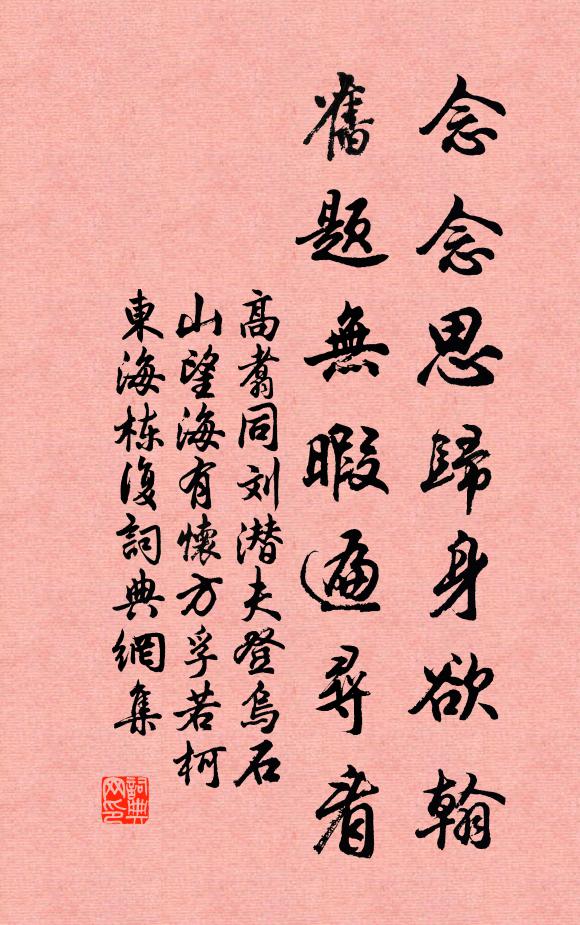 念念思歸身欲翰
舊題無暇遍尋看
高翥同刘潜夫登烏石
山望海有懷方孚若柯
東海栋復詞典網集
詞典
网印